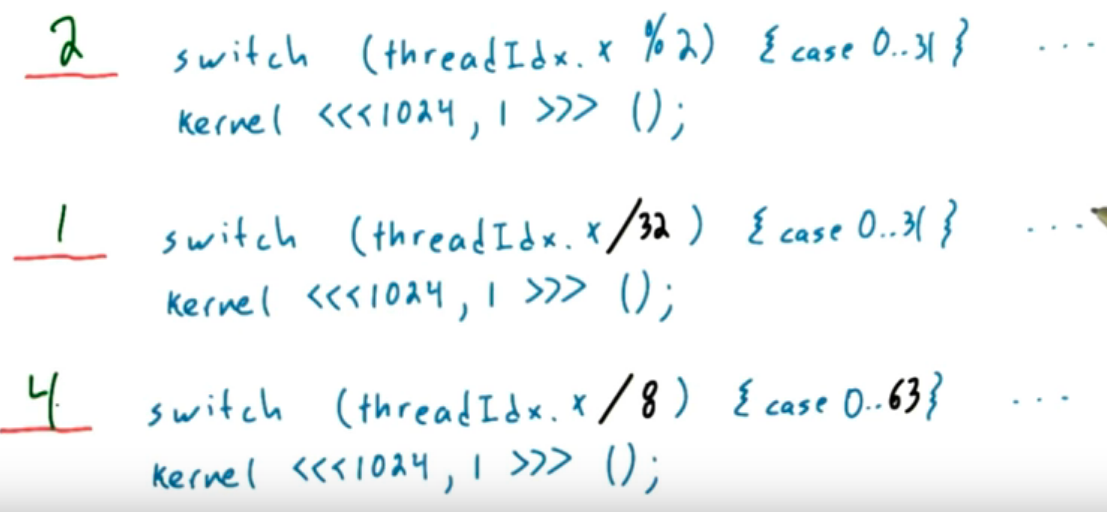 2 switch (threadIdx.x %2) { case 0..31 } ...
kernel <<<1024, 1 >>> ();
1 switch (threadIdx.x /32 ) { case 0..31 } ...
kernel <<<1024, 1 >>> ();
4 switch (threadIdx.x /8) { case 0..63} ...
kernel <<<1024, 1 >>> ();